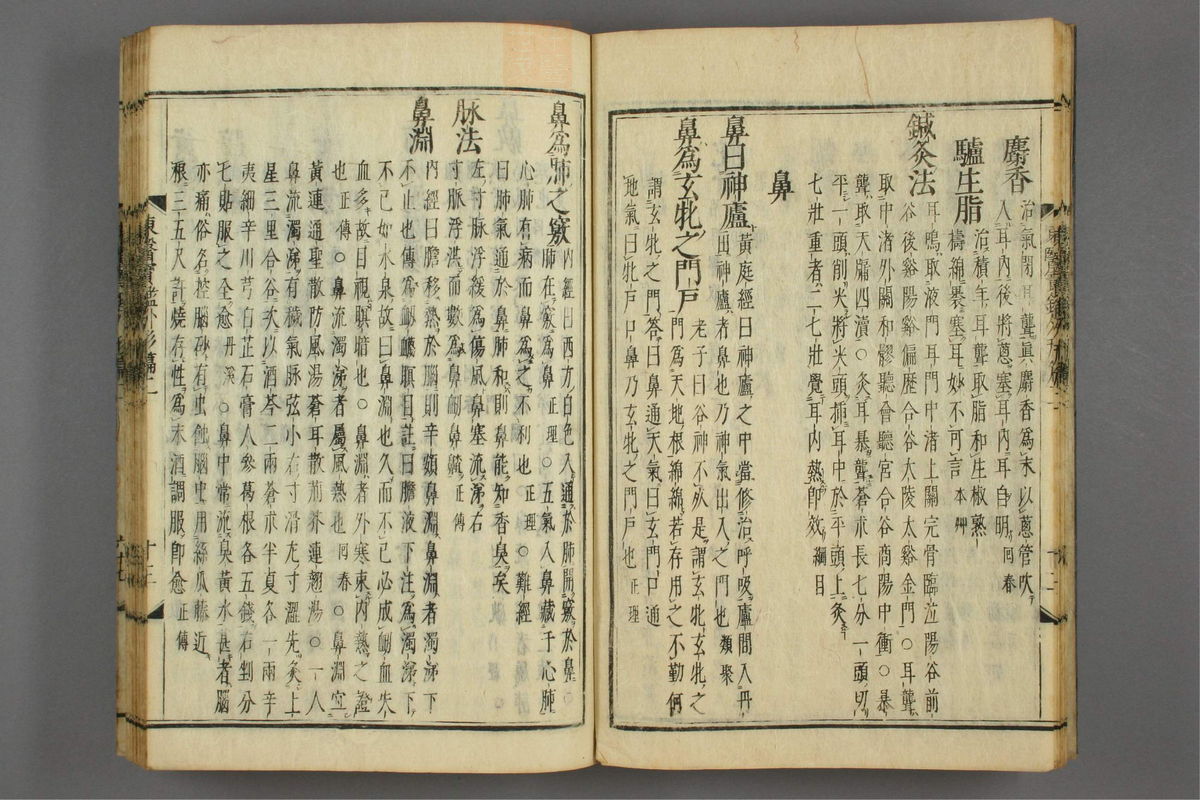 麝香治氣閉耳聾眞麝香爲末以蔥管吹
入耳內後將蔥塞耳內耳自明回春
驢生脂治積年耳聾取脂和生椒熟
擣綿裹塞耳妙不可言本艸
鍼灸法耳鳴取液門耳門中渚上關完骨臨泣陽谷前
谷後谿陽谿偏歷合谷大陵太谿金門○耳聾
取中渚外關和髎聽會聽宮合谷商陽中衝○暴
聾取天牖四瀆○灸耳暴聾蒼朮長七分一頭切
平一頭削尖將尖頭揷耳中於平頭上灸
七壯重者二七壯覺耳內熱卽效綱目
鼻
鼻曰神廬黃庭經曰神廬之中當修治呼吸廬間入丹
田神廬者鼻也乃神氣出入之門也類聚
鼻爲玄牝之門戶老子曰谷神不死是謂玄牝玄牝之
門爲天地根綿綿若存用之不勤何
謂玄牝之門答曰鼻通天氣曰玄門口通
地氣曰牝戶口鼻乃玄牝之門戶也正理
鼻爲肺之竅內經曰西方白色入通於肺開竅於鼻○
肺在竅爲鼻正理○五氣入鼻藏于心肺
心肺有病而鼻爲之不利也正理○難經
曰肺氣通於鼻和則鼻能知香臭矣
脉法左寸脈浮緩爲傷風鼻塞流涕右
寸脈浮洪而數爲鼻衄鼻齄正傳
鼻淵內經曰膽移熱於腦則辛頞鼻淵鼻淵者濁涕下
不止也傳爲衄衊瞑目註曰膽液下注爲濁涕下
不已如水泉故曰鼻淵也久而不已必成衄血失
血多故目視瞑暗也○鼻淵者外寒束內熱之證
也正傳○鼻流濁涕者屬風熱也回春○鼻淵宜
黃連通聖散防風湯蒼耳散荊芥連翹湯○一人
鼻流濁涕有穢氣脉弦小右寸滑左寸澀先灸上
星三里合谷次以酒芩二兩蒼朮半夏各一兩辛
夷細辛川芎白芷石膏人參葛根各五錢右剉分
七貼服之全愈丹溪○鼻中常流臭黃水甚者腦
亦痛俗名控腦砂有虫蝕腦中用絲瓜藤近
根三五尺許燒存性爲末酒調服卽愈正傳
東醫寶鑑外形篇二